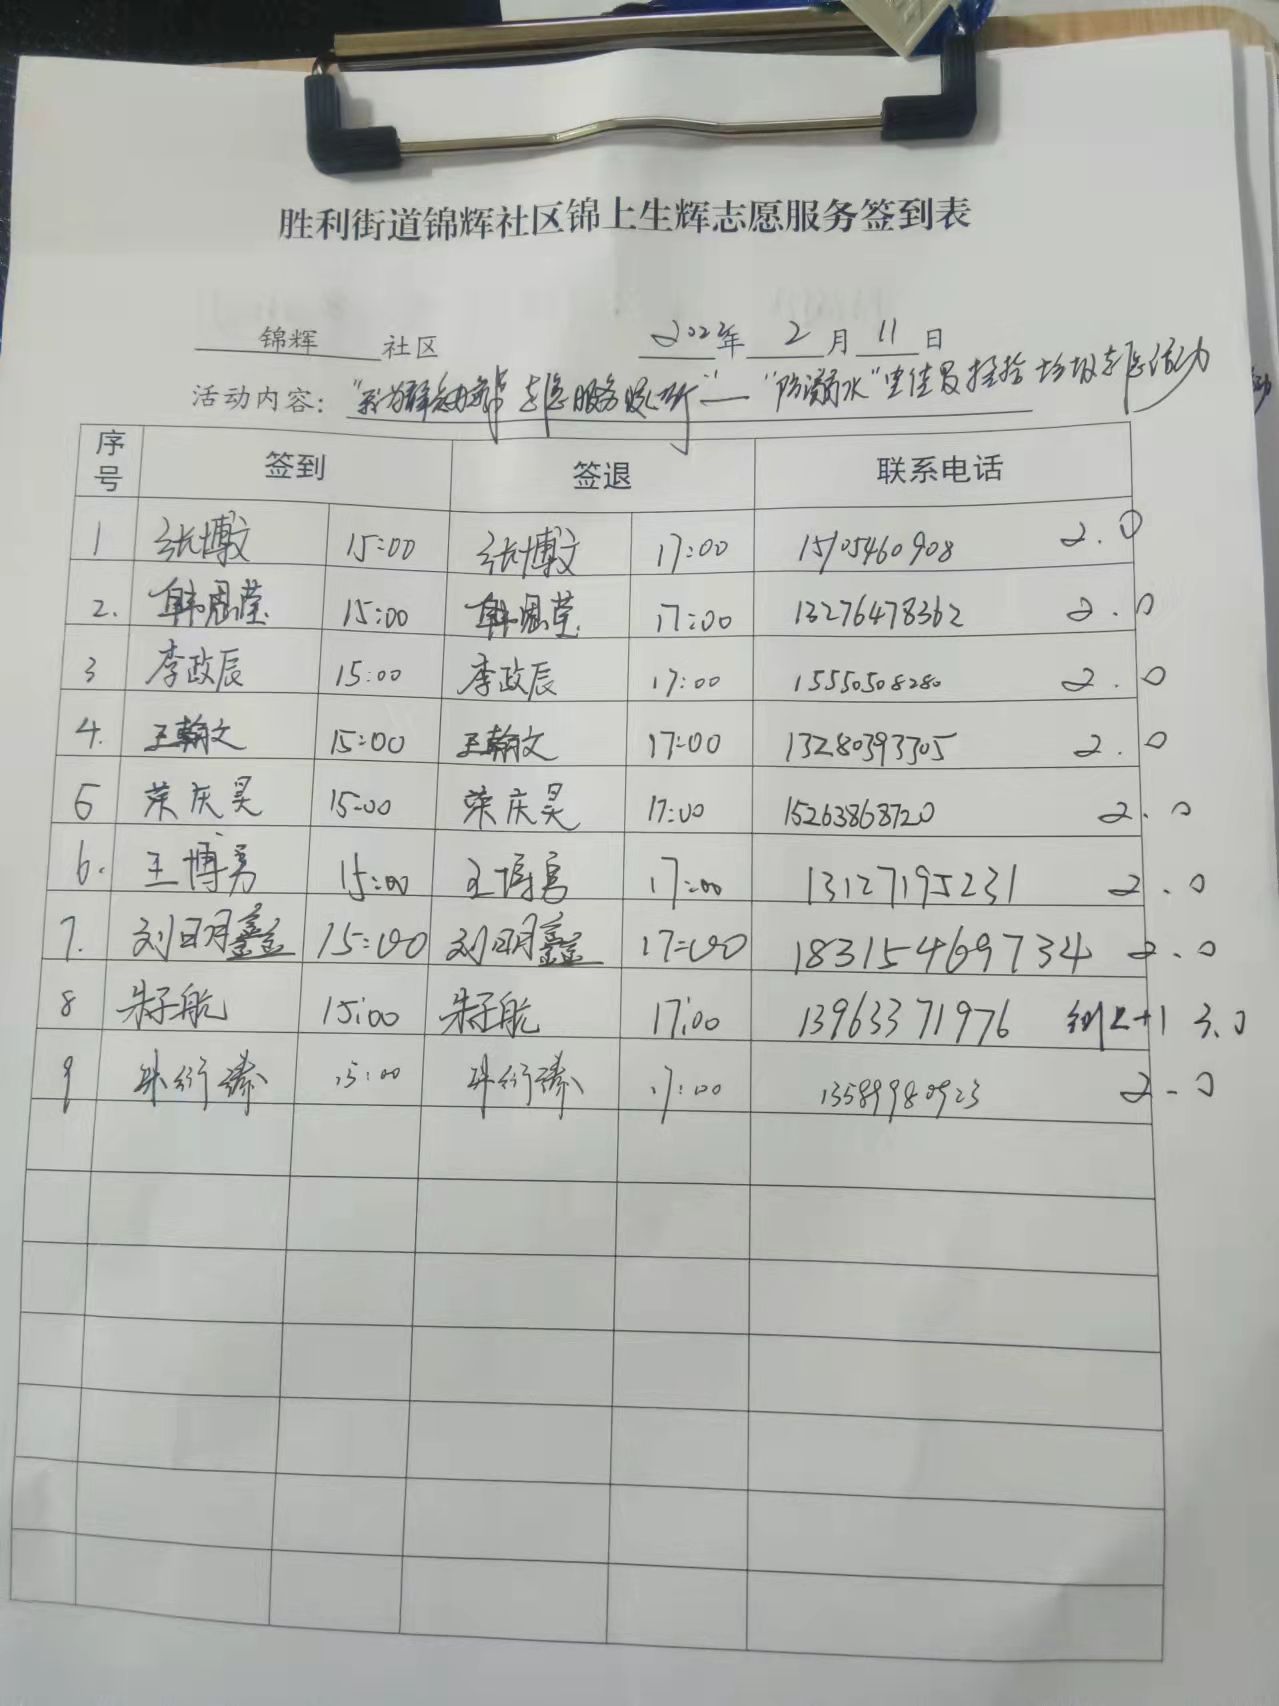 胜利街道锦辉社区锦上生辉志愿服务签到表
锦辉 社区 2022年 2 月 11 日
活动内容：“我为群众办 志愿服务 ”—“防溺水”宣传及捡拾垃圾志愿活动
序号 签到 签退 联系电话
1 张博文 15:00 张博文 17:00 15105460908 2.0
2. 韩思莹 15:00 韩思莹 17:00 13276478362 2.0
3 李政辰 15:00 李政辰 17:00 15550508280 2.0
4. 王翰文 15:00 王翰文 17:00 13280393305 2.0
5 荣庆昊 15:00 荣庆昊 17:00 15263868720 2.0
6. 王博 15:00 王博 17:00 13127195231 2.0
7. 刘明鑫 15:00 刘明鑫 17:00 18315469734 2.0
8 朱子航 15:00 朱子航 17:00 13963371976 +1 3.0
9 朱衍臻 15:00 朱衍臻 17:00 13589980923 2.0